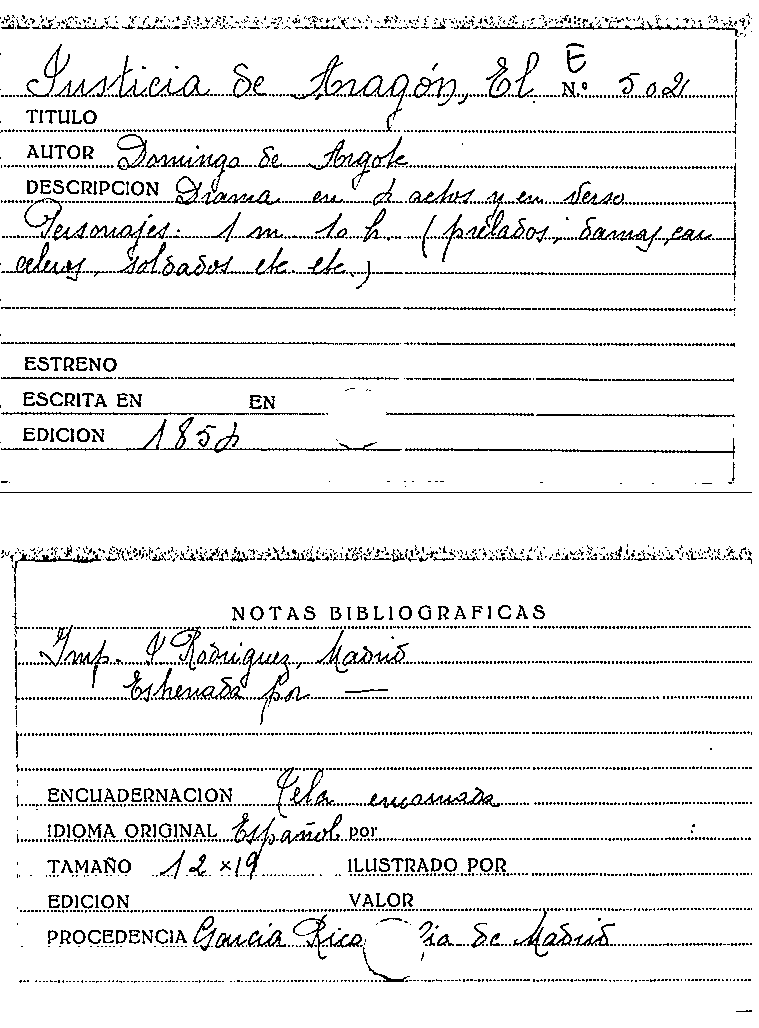 Justicia de Aragón, El E
Nº 5021
TITULO
AUTOR Domingo de Argote
DESCRIPCION Drama en 4 actos y en verso
Personajes. 1 m 10 h. (prelados, damas, car
celeros, soldados etc. etc.)
ESTRENO
ESCRITA EN EN
EDICION 1854
NOTAS BIBLIOGRAFICAS
Imp. Rodriguez, Madrid
Estrenada por —
ENCUADERNACION Tela encarnada
IDIOMA ORIGINAL Español por
TAMAÑO 12 x 19 ILUSTRADO POR
EDICION VALOR
PROCEDENCIA Garcia Rico de Madrid